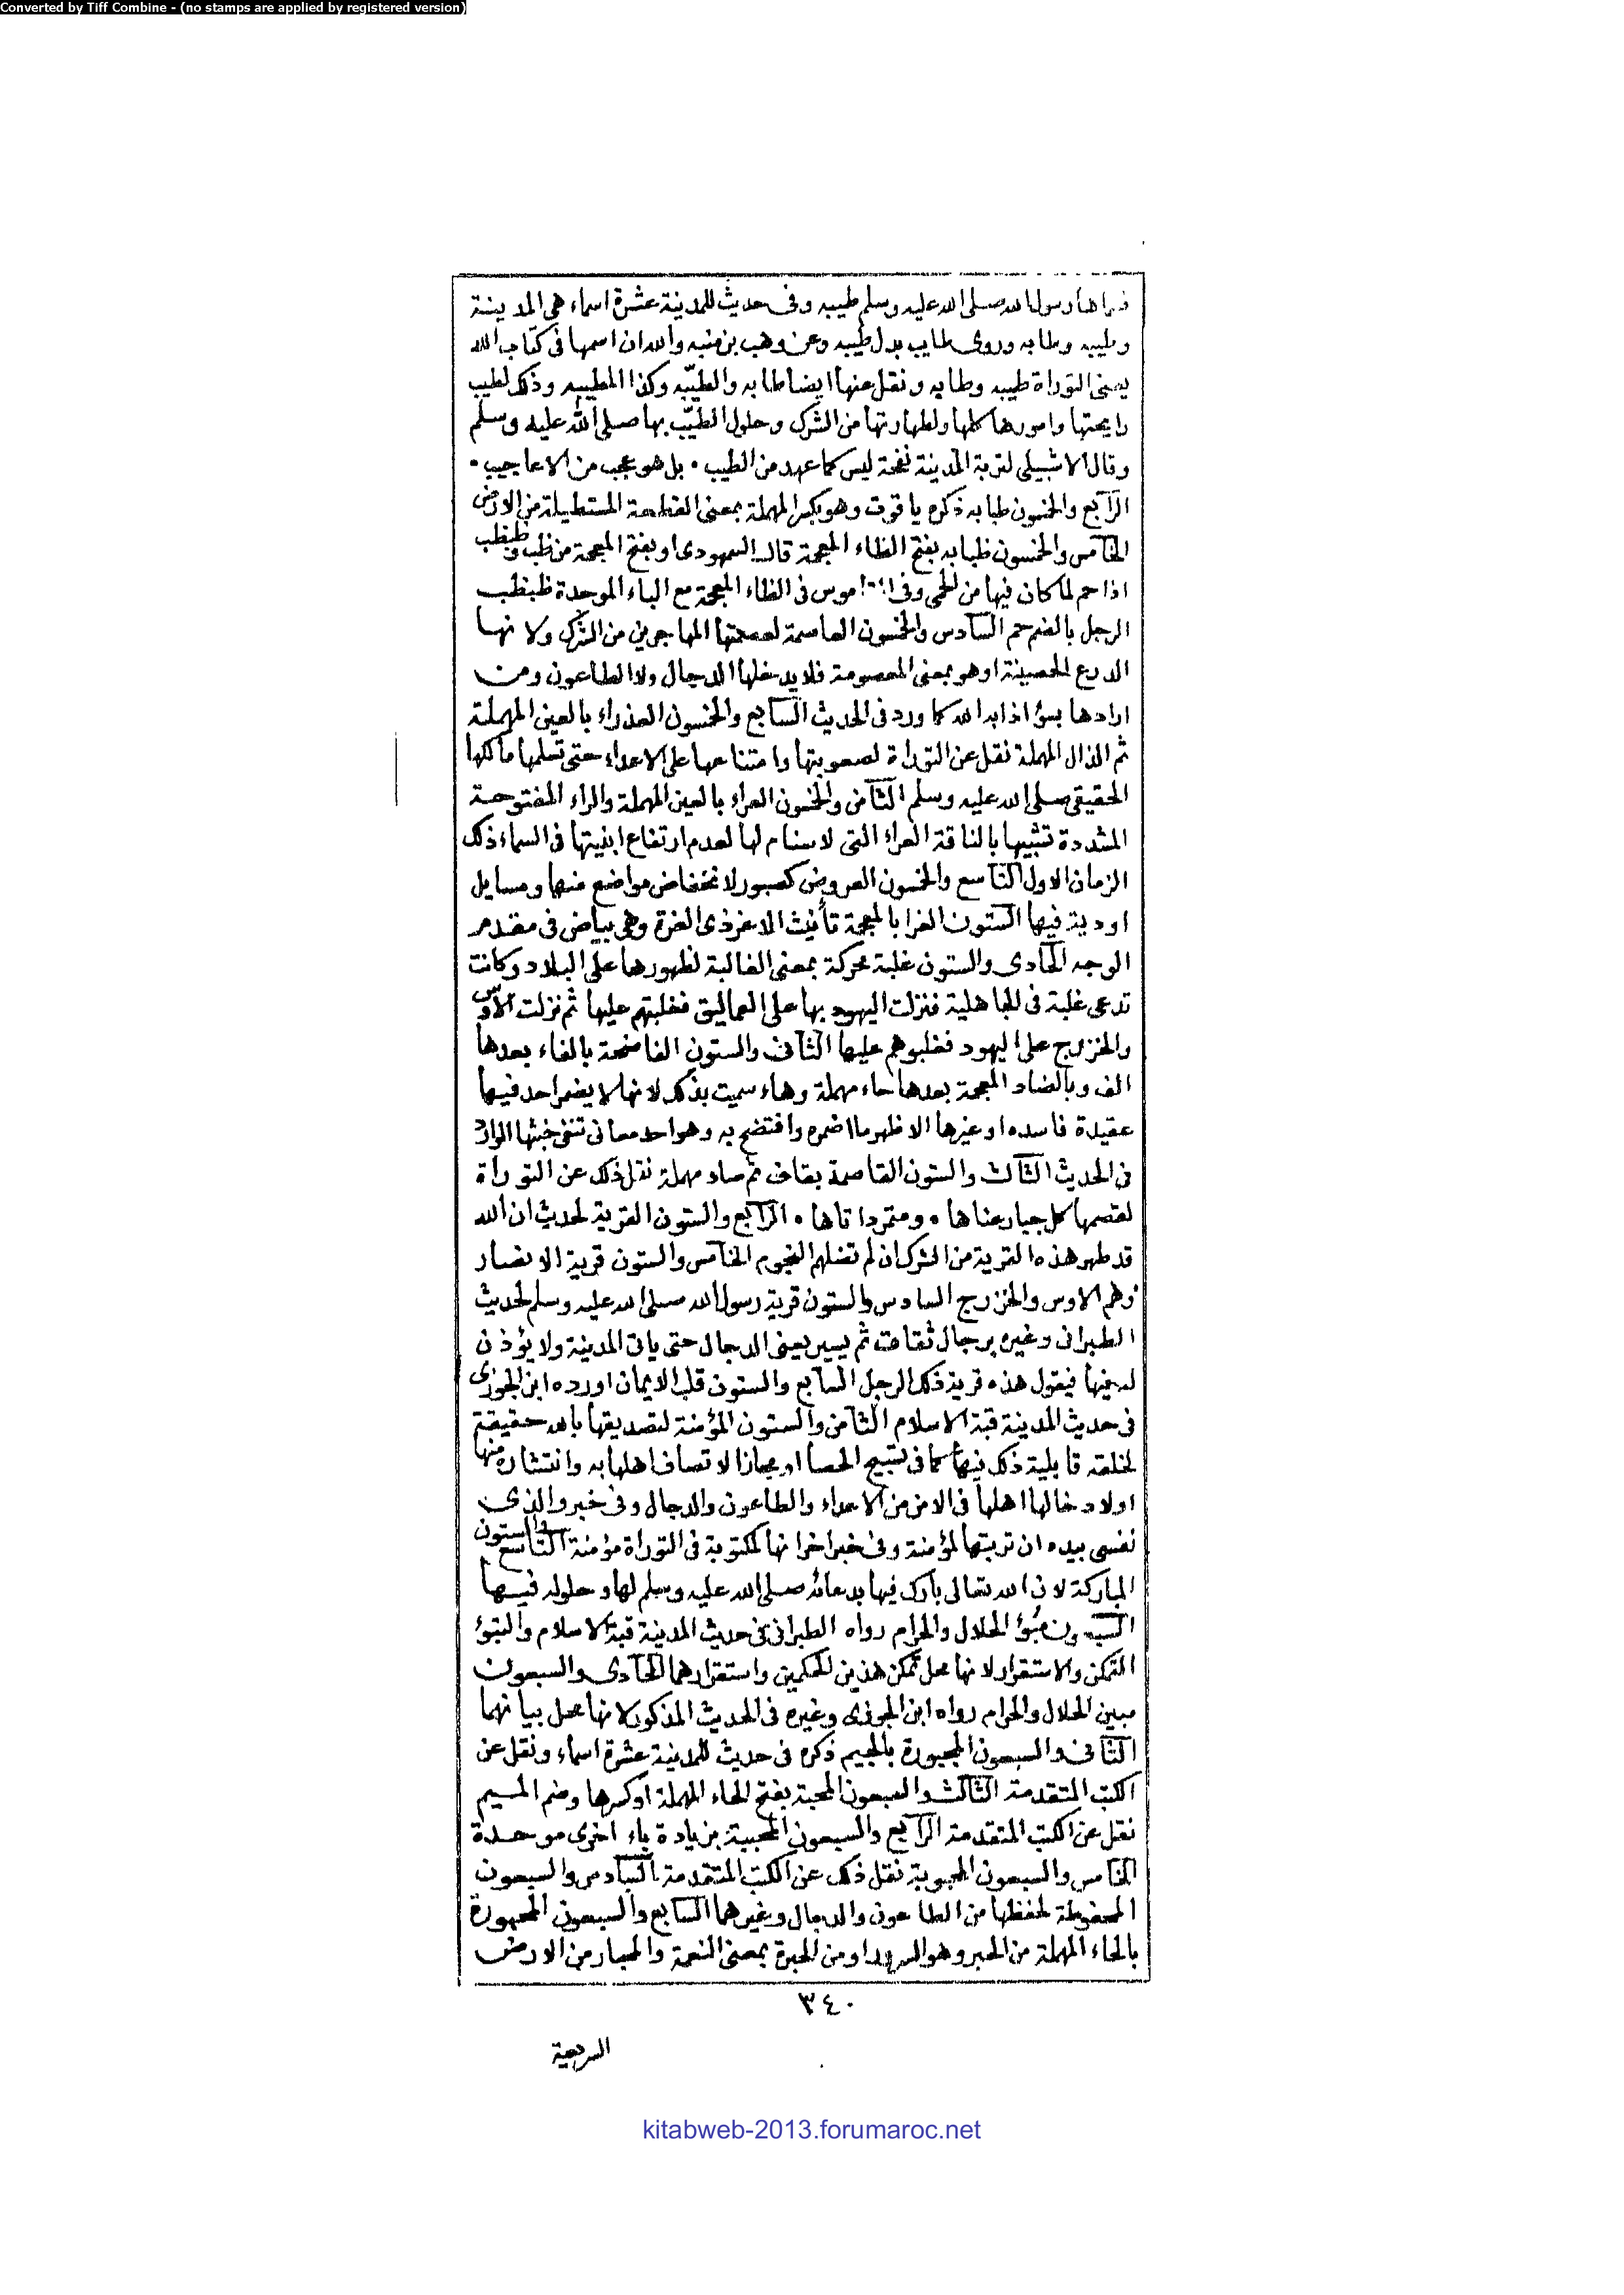 Converted by Tiff Combine - (no stamps are applied by registered version)
رسول الله صلى الله عليه وسلم طيبه وفى حديث للمدينة عشرة اسماء هى المدينة
وطيبه وطابه وروى طايب بدل طيبه وعن وهب بن منبه والله ان اسمها فى كتاب الله
يعنى التوراة طيبه وطابه ونقل عنها ايضا طابه والطيّبه وكذا المطيبه وذلك لطيب
رايحتها وامورها كلها ولطهارتها من الشرك وحلول الطيّب بها صلى الله عليه وسلم
وقال الاشبيلى لتربة المدينة نفحة ليس كما عهد من الطيب • بل هو عجب من الاعاجيب •
الرابع والخمسون طبابه ذكره ياقوت وهو بكسر المهملة بمعنى القطعة المستطيلة من الارض
الخامس والخمسون ظبابه بفتح الظاء المعجمة قال السمهودى او بفتح المعجمة من ظب وظبظب
اذا حم لما كان فيها من الحمى وفى القاموس فى الظاء المعجمة مع الباء الموحدة ظبظب
الرجل بالضم حم السادس والخمسون العاصمة لعصمتها المهاجرين من الشرك ولانها
الدرع الحصينة او هو بمعنى المعصومة فلا يدخلها الدجال ولا الطاعون ومن
ارادها بسؤ اذابه الله كما ورد فى الحديث السابع والخمسون العذراء بالعين المهملة
ثم الذال المهملة نقل عن التوراة لصعوبتها وامتناعها على الاعداء حتى تسلمها مالكها
الحقيقى صلى الله عليه وسلم الثامن والخمسون العراء بالعين المهملة والراء المفتوحة
المشددة تشبيها بالناقة العراء التى لا سنام لها لعدم ارتفاع ابنيتها فى السماء ذلك
الزمان الاول التاسع والخمسون العروض كصبور لانخفاض مواضع منها ومسايل
اودية فيها الستون الغرا بالمعجمة تأنيث الاغر ذى الغرة وهى بياض فى مقدم
الوجه الحادى والستون غلبة محركة بمعنى الغالبة لظهورها على البلاد وكانت
تدعى غلبة فى الجاهلية فنزلت اليهود بها على العماليق فغلبتهم عليها ثم نزلت الاوس
والخزرج على اليهود فغلبوهم عليها الثانى والستون الفاضحة بالفاء بعدها
الف وبالضاد المعجمة بعدها حاء مهملة وهاء سميت بذلك لانها لا يضمر احد فيها
عقيدة فاسده او غيرها الا ظهر ما اضمره وافتضح به وهو احد معانى تنفى خبثها الوارد
فى الحديث الثالث والستون القاصمة بقاف ثم صاد مهملة نقل ذلك عن التوراة
لقصمها كل جبار عناها • ومتمرد اتاها • الرابع والستون القرية لحديث ان الله
قد طهر هذه القرية من الشرك ان لم تضلهم النجوم الخامس والستون قرية الانصار
وهم الاوس والخزرج السادس والستون قرية رسول الله صلى الله عليه وسلم لحديث
الطبرانى وغيره برجال ثقات ثم يسير يعنى الدجال حتى ياتى المدينة ولا يؤذن
له فيها فيقول هذه قرية ذلك الرجل السابع والستون قلب الايمان اورده ابن الجوزى
فى حديث المدينة قبة الاسلام الثامن والستون المؤمنة لتصديقها بالله حقيقة
لخلقه قابلية ذلك فيها كما فى تسبيح الحصا او مجازا لاتصاف اهلها به وانتشاره منها
اولادخالها اهلها فى الامن من الاعداء والطاعون والدجال وفى خبر والذى
نفسى بيده ان تربتها لمؤمنة وفى خبر اخر انها لمكتوبة فى التوراة مؤمنة التاسع والستون
المباركة لان الله تعالى بارك فيها بدعائه صلى الله عليه وسلم لها وحلوله فيها
السبعون مبوؤ الحلال والحرام رواه الطبرانى فى حديث المدينة قبة الاسلام والتبؤ
التمكن والاستقرار لانها محل تمكن هذين الحكمين واستقرارهما الحادى والسبعون
مبين الحلال والحرام رواه ابن الجوزى وغيره فى الحديث المذكور لانها محل بيانهما
الثانى والسبعون المجبورة بالجيم ذكره فى حديث للمدينة عشرة اسماء ونقل عن
الكتب المتقدمة الثالث والسبعون المحبة بفتح الحاء المهملة او كسرها وضم الميم
نقل عن الكتب المتقدمة الرابع والسبعون المحببة بزيادة باء اخرى موحدة
الخامس والسبعون المحبوبة نقل ذلك عن الكتب المتقدمة السادس والسبعون
المحفوظة لحفظها من الطاعون والدجال وغيرهما السابع والسبعون المحبورة
بالحاء المهملة من الحبر وهو السرور او من الحبرة بمعنى النعمة والمحبار من الارض
٣٤٠
السريعة
kitabweb-2013.forumaroc.net